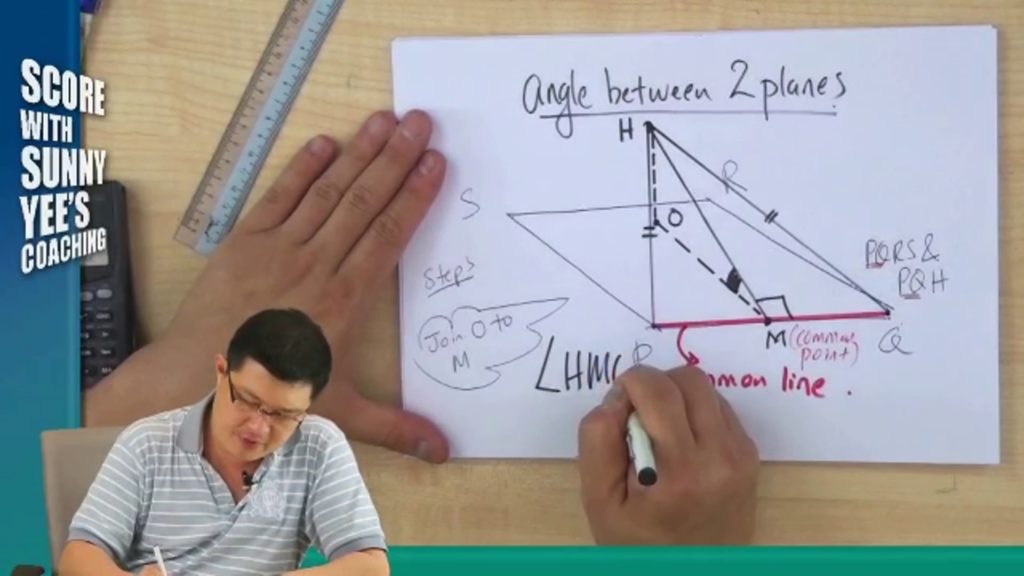 SCORE
WITH
SUNNY
YEE'S
COACHING
angle between 2 planes
H
R
S
O
PQRS &
PQH
Step 3
Join O to
M
M (common
point)
Q
P
∠HMO
common line.